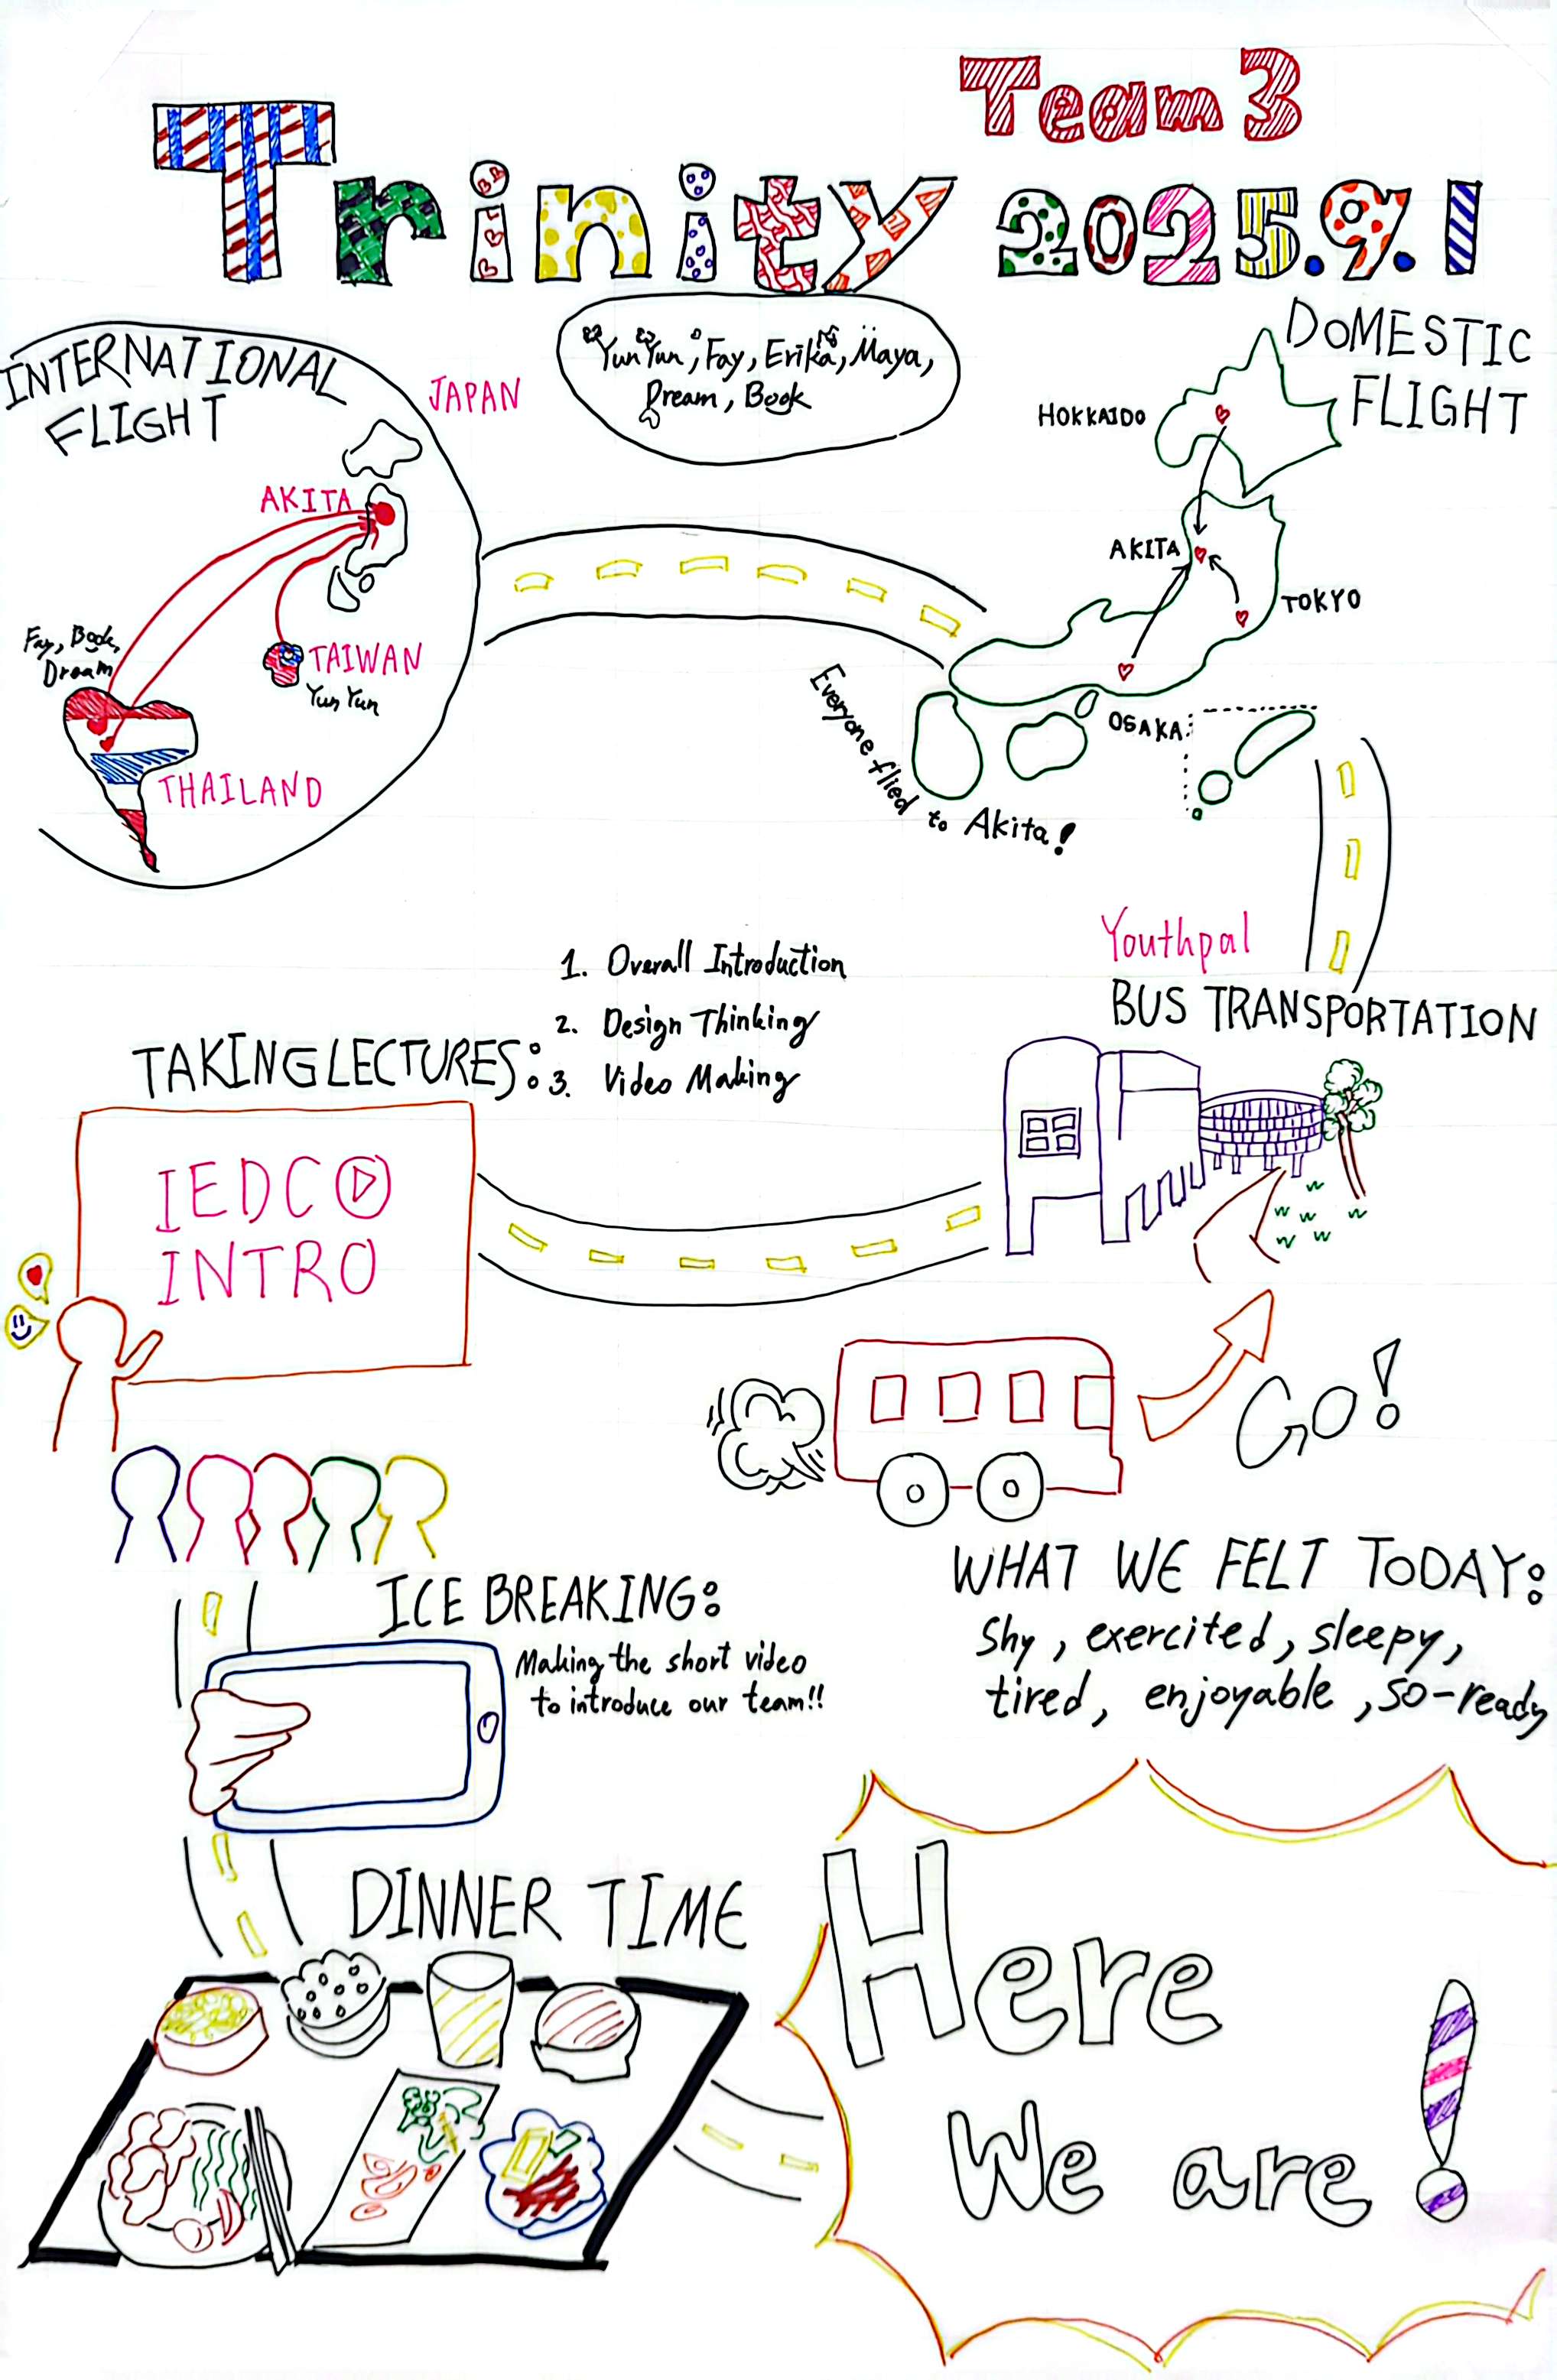 Team 3
Trinity 2025.9.1
YunYun, Fay, Erika, Maya,
Dream, Book
INTERNATIONAL
FLIGHT
JAPAN
AKITA
Fay, Book,
Dream
TAIWAN
YunYun
THAILAND
DOMESTIC
FLIGHT
HOKKAIDO
AKITA
TOKYO
OSAKA
Everyone flied to Akita!
Youthpal
BUS TRANSPORTATION
GO!
TAKING LECTURES:
1. Overall Introduction
2. Design Thinking
3. Video Making
IEDC
INTRO
ICE BREAKING:
Making the short video
to introduce our team!!
WHAT WE FELT TODAY:
Shy, exercited, sleepy,
tired, enjoyable, so-ready
DINNER TIME
Here
We are!